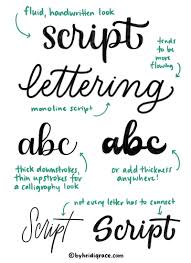 fluid, handwritten look
script
tends to
be more
flowing
lettering
monoline script
abc abc
thick downstrokes,
thin upstrokes for
a calligraphy look
or add thickness
anywhere!
not every letter has to connect
Script Script
©byheidigrace.com